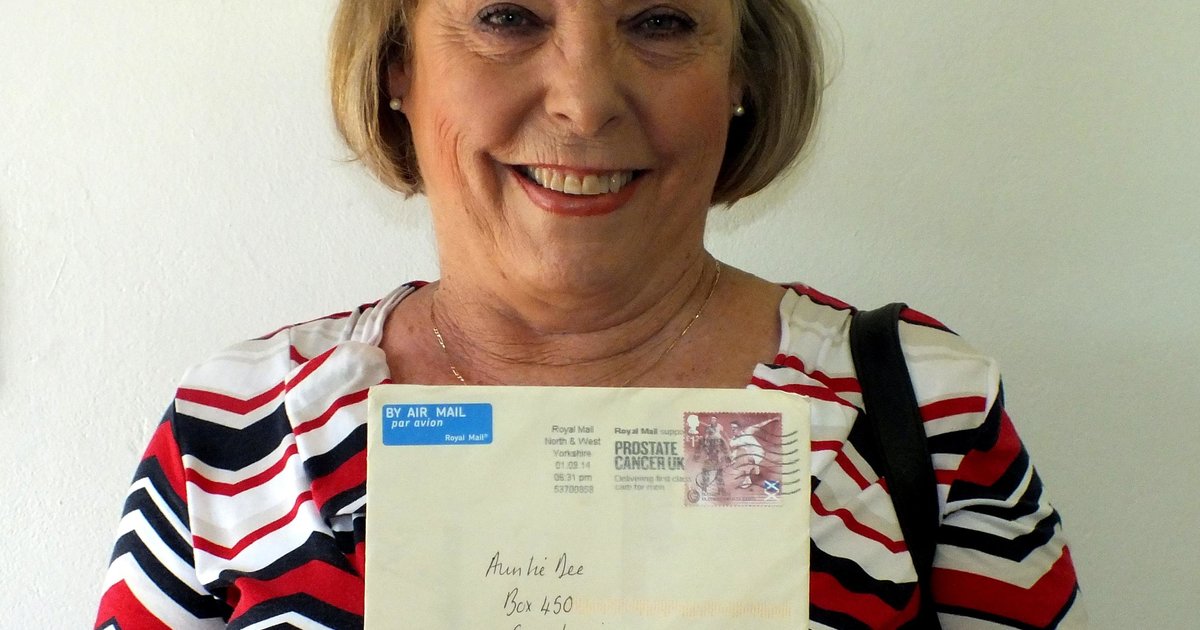 BY AIR MAIL
par avion
Royal Mail®
Royal Mail
North & West
Yorkshire
01.09.14
06:31 pm
53700858
Royal Mail
PROSTATE
CANCER UK
Delivering first class
care for men
Auntie Dee
Box 450